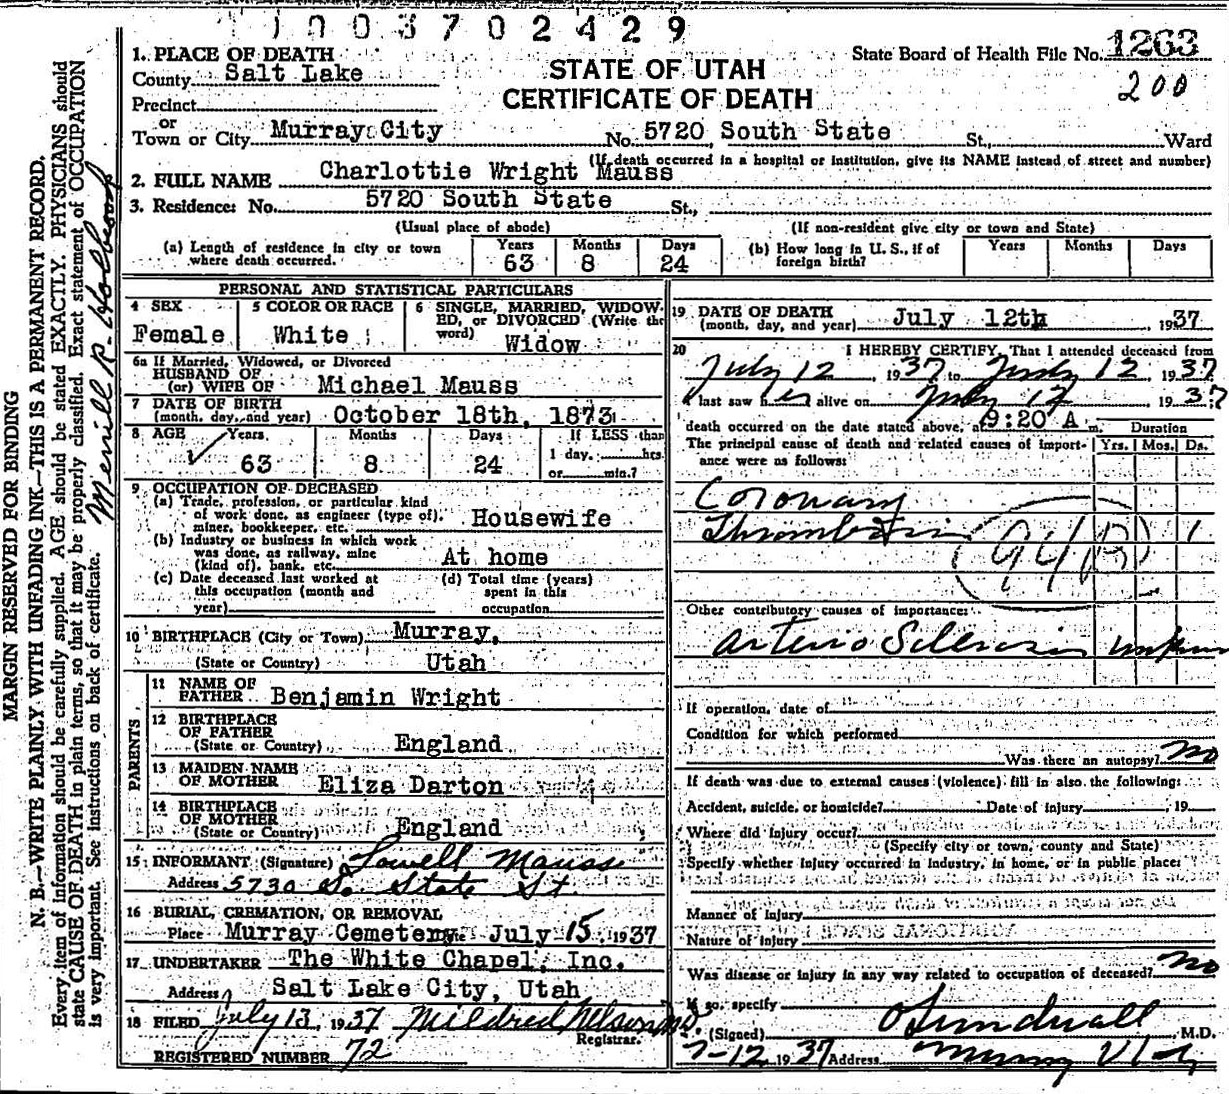 1003702429
1. PLACE OF DEATH
County Salt Lake
Precinct
or
Town or City Murray City
STATE OF UTAH
CERTIFICATE OF DEATH
State Board of Health File No. 1263
200
No. 5720 South State St., Ward
(If death occurred in a hospital or institution, give its NAME instead of street and number)
2. FULL NAME Charlottie Wright Mauss
3. Residence: No. 5720 South State St.,
(Usual place of abode) (If non-resident give city or town and State)
(a) Length of residence in city or town where death occurred. Years 63 Months 8 Days 24
(b) How long in U. S., if of foreign birth? Years Months Days
PERSONAL AND STATISTICAL PARTICULARS
4 SEX Female
5 COLOR OR RACE White
6 SINGLE, MARRIED, WIDOWED, or DIVORCED (Write the word) Widow
6a If Married, Widowed, or Divorced
HUSBAND OF
(or) WIFE OF Michael Mauss
7 DATE OF BIRTH
(month, day, and year) October 18th, 1873
8 AGE Years 63 Months 8 Days 24 If LESS than 1 day, hrs. or min.?
9 OCCUPATION OF DECEASED
(a) Trade, profession, or particular kind
of work done, as engineer (type of),
miner, bookkeeper, etc. Housewife
(b) Industry or business in which work
was done, as railway, mine
(kind of), bank, etc. At home
(c) Date deceased last worked at this occupation (month and year)
(d) Total time (years) spent in this occupation
10 BIRTHPLACE (City or Town) Murray,
(State or Country) Utah
PARENTS
11 NAME OF FATHER Benjamin Wright
12 BIRTHPLACE OF FATHER
(State or Country) England
13 MAIDEN NAME OF MOTHER Eliza Darton
14 BIRTHPLACE OF MOTHER
(State or Country) England
15 INFORMANT (Signature) Lowell Mauss
Address 5730 So State St
16 BURIAL, CREMATION, OR REMOVAL
Place Murray Cemetery July 15, 1937
17 UNDERTAKER The White Chapel, Inc.
Address Salt Lake City, Utah
18 FILED July 13, 1937 Mildred Nelson
Registrar.
REGISTERED NUMBER 72
19 DATE OF DEATH
(month, day, and year) July 12th, 1937
20 I HEREBY CERTIFY, That I attended deceased from
July 12, 1937 to July 12, 1937
I last saw her alive on July 12, 1937
death occurred on the date stated above, at 9:20 A m.
The principal cause of death and related causes of importance were as follows:
Duration
Yrs. Mos. Ds.
Coronary
Thrombosis 1
94B
Other contributory causes of importance:
Arterio Sclerosis
If operation, date of
Condition for which performed
Was there an autopsy? no
If death was due to external causes (violence) fill in also the following:
Accident, suicide, or homicide? Date of injury , 19
Where did injury occur?
(Specify city or town, county and State)
Specify whether injury occurred in industry, in home, or in public place:
Manner of injury
Nature of injury
Was disease or injury in any way related to occupation of deceased? no
If so, specify
(Signed) O Sundwall M.D.
7-12, 1937 Address Murray Utah
MARGIN RESERVED FOR BINDING
N. B.—WRITE PLAINLY WITH UNFADING INK—THIS IS A PERMANENT RECORD.
Every item of information should be carefully supplied. AGE should be stated EXACTLY. PHYSICIANS should
state CAUSE OF DEATH in plain terms, so that it may be properly classified. Exact statement of OCCUPATION
is very important. See instructions on back of certificate.
Merrill R. Holbrook